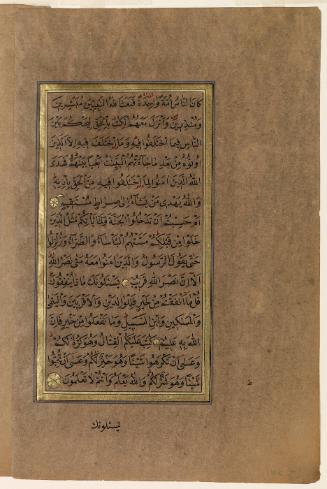 كان الناس أمة واحدة فبعث الله النبيين مبشرين
ومنذرين وأنزل معهم الكتاب بالحق ليحكم بين
الناس فيما اختلفوا فيه وما اختلف فيه إلا الذين
أوتوه من بعد ما جاءتهم البينات بغيا بينهم فهدى
الله الذين آمنوا لما اختلفوا فيه من الحق بإذنه
والله يهدي من يشاء إلى صراط مستقيم
أم حسبتم أن تدخلوا الجنة ولما يأتكم مثل الذين
خلوا من قبلكم مستهم البأساء والضراء وزلزلوا
حتى يقول الرسول والذين آمنوا معه متى نصر الله
ألا إن نصر الله قريب يسئلونك ماذا ينفقون
قل ما أنفقتم من خير فللوالدين والأقربين واليتامى
والمساكين وابن السبيل وما تفعلوا من خير فإن
الله به عليم كتب عليكم القتال وهو كره لكم
وعسى أن تكرهوا شيئا وهو خير لكم وعسى أن تحبوا
شيئا وهو شر لكم والله يعلم وأنتم لا تعلمون
يسئلونك